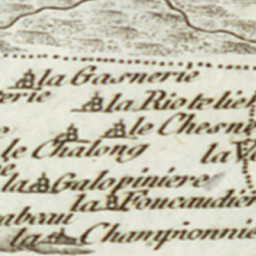 la Gasnerie
la Riotelie
le Chesne
le Chalong
la Galopiniere
la Foucaudie
abeau
la Championnie